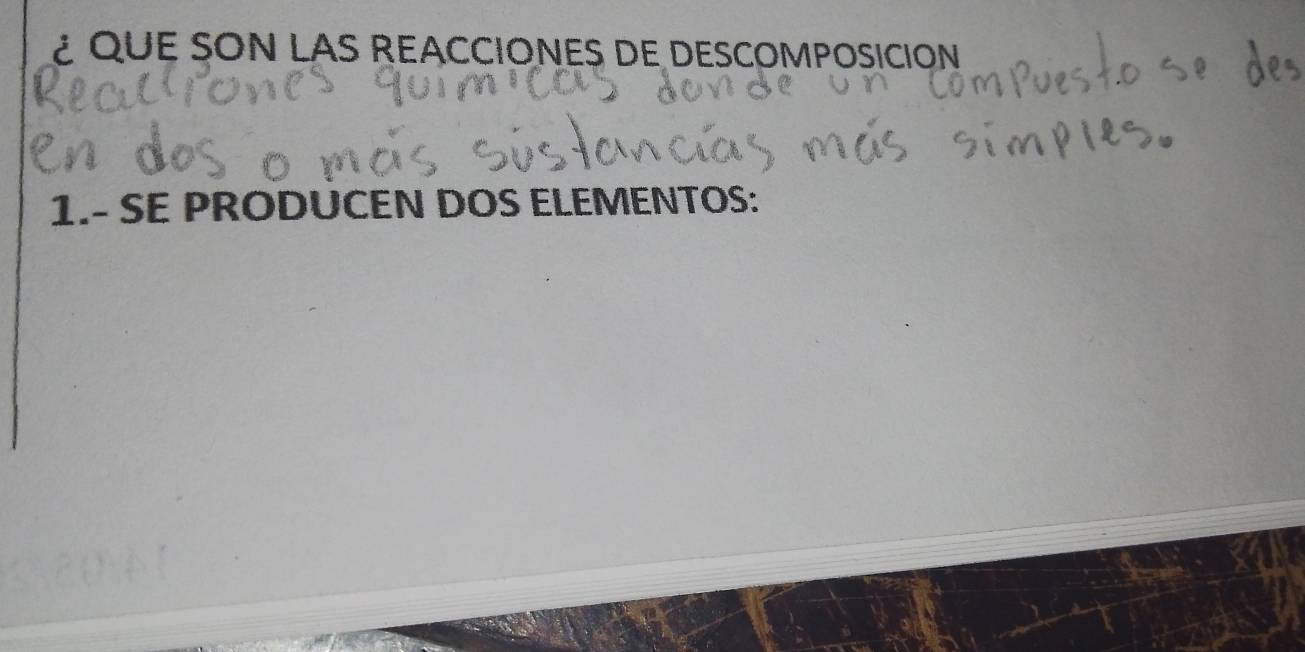 ¿ QUE SON LAS REACCIONES DE DESCOMPOSICION
Reacciones químicas donde un compuesto se des
en dos o más sústancías más simples.
1.- SE PRODUCEN DOS ELEMENTOS: